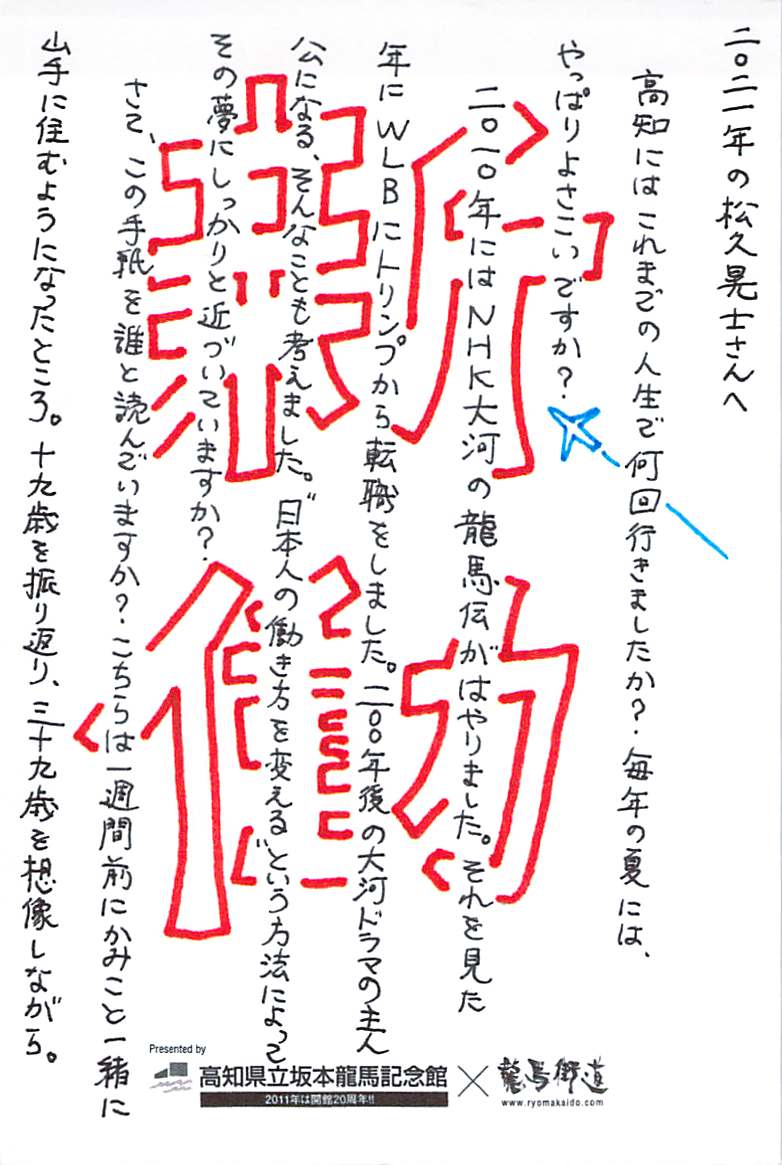 二〇二一年の松久晃士さんへ
高知にはこれまでの人生で何回行きましたか？毎年の夏には、
やっぱりよさこいですか？
二〇一〇年にはNHK大河の龍馬伝がはやりました。それを見た
年にWLBにトリンプから転職をしました。二〇〇年後の大河ドラマの主人
公になる、そんなことも考えました。"日本人の働き方を変える"という方法によって
その夢にしっかりと近づいていますか？
さて、この手紙を誰と読んでいますか？こちらは一週間前にかみこと一緒に
山手に住むようになったところ。十九歳を振り返り、三十九歳を想像しながら。
新
働
Presented by
高知県立坂本龍馬記念館×龍馬街道
2011年は開館20周年!!
www.ryomakaido.com